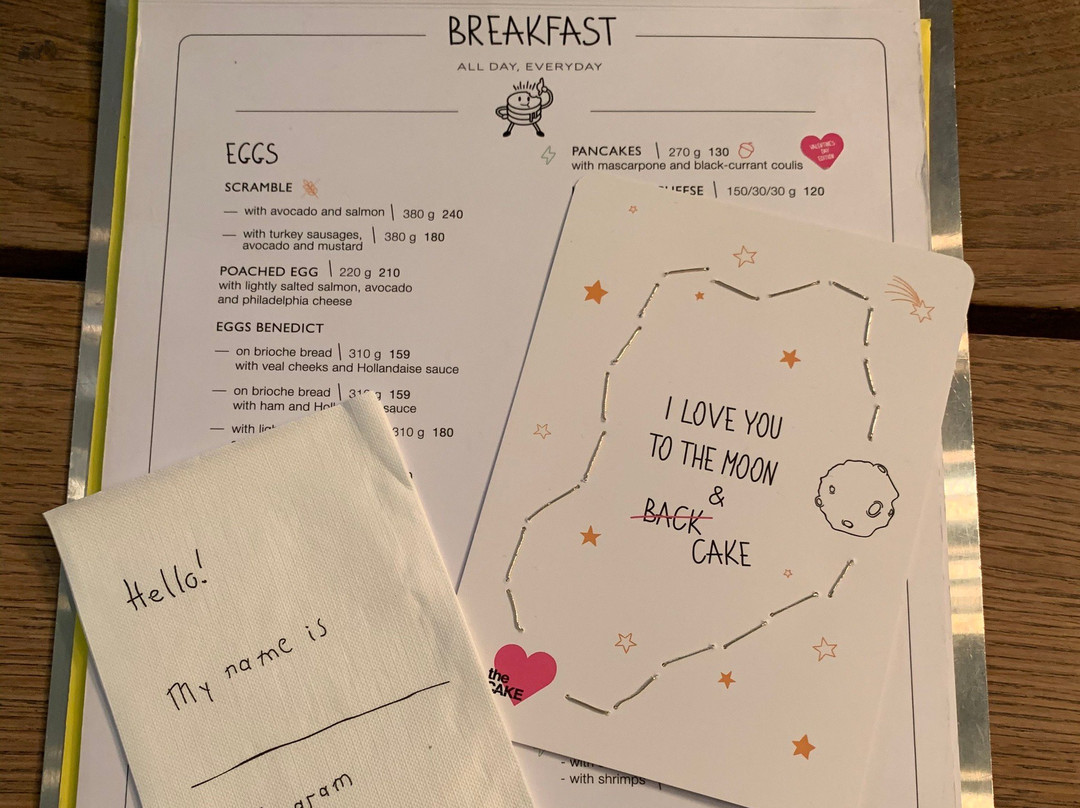 BREAKFAST
ALL DAY, EVERYDAY
EGGS
SCRAMBLE
— with avocado and salmon | 380 g 240
— with turkey sausages, | 380 g 180
avocado and mustard
POACHED EGG | 220 g 210
with lightly salted salmon, avocado
and philadelphia cheese
EGGS BENEDICT
— on brioche bread | 310 g 159
with veal cheeks and Hollandaise sauce
— on brioche bread | 159
with ham and sauce
— with 310 g 180
PANCAKES | 270 g 130
with mascarpone and black-currant coulis
VALENTINE'S
DAY
EDITION
| 150/30/30 g 120
I LOVE YOU
TO THE MOON
&
BACK
CAKE
the
CAKE
Hello!
My name is
- with
- with shrimps